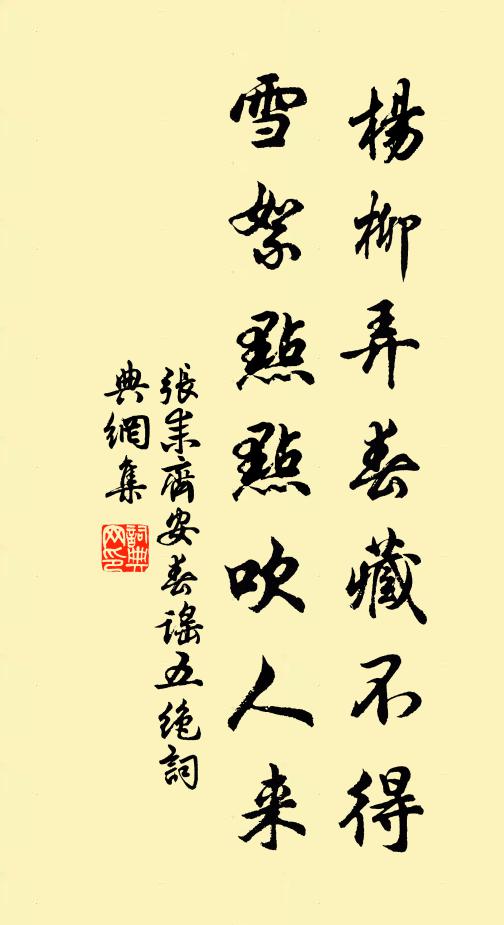 楊柳弄春藏不得
雪絮點點吹人来
張耒齊安春謠五绝詞
典網集
詞典
网印